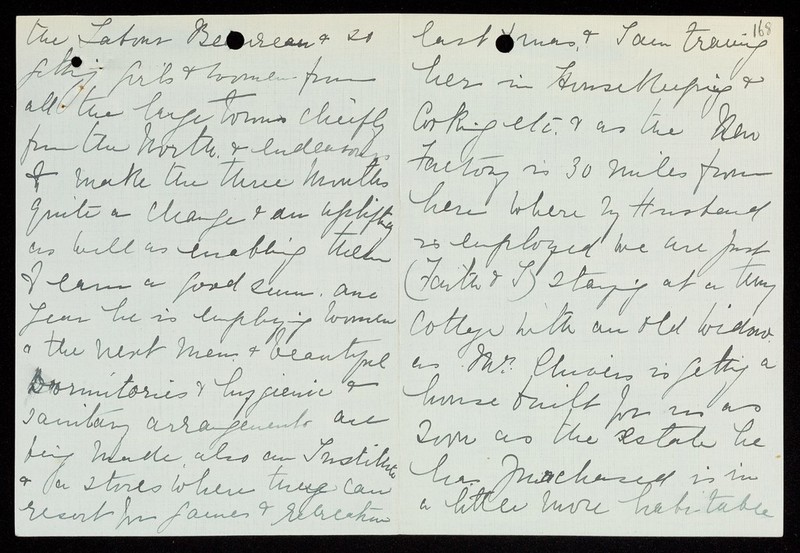 the Labour Beaureau & so
getting girls & women from
all the large towns chiefly
from the North, & endeavours
to make the three months
quite a change & an uplifting
as well as enabling them
to earn a good sum. one
year he is employing women
& the next men, & beautiful
Dormitories & hygienic &
sanitary arrangements are
being made also an Institute
& a stores where they can
resort for games & recreation
168
last Xmas, & I am training
her in Housekeeping &
Cooking etc. & as the New
Factory is 30 miles from
here where my Husband
is employed we are just
(Faith & I) staying at a tiny
Cottage with an old widow
as Mr. Chivers is getting a
house built for us as
soon as the estate he
has purchased is in
a little more habitable